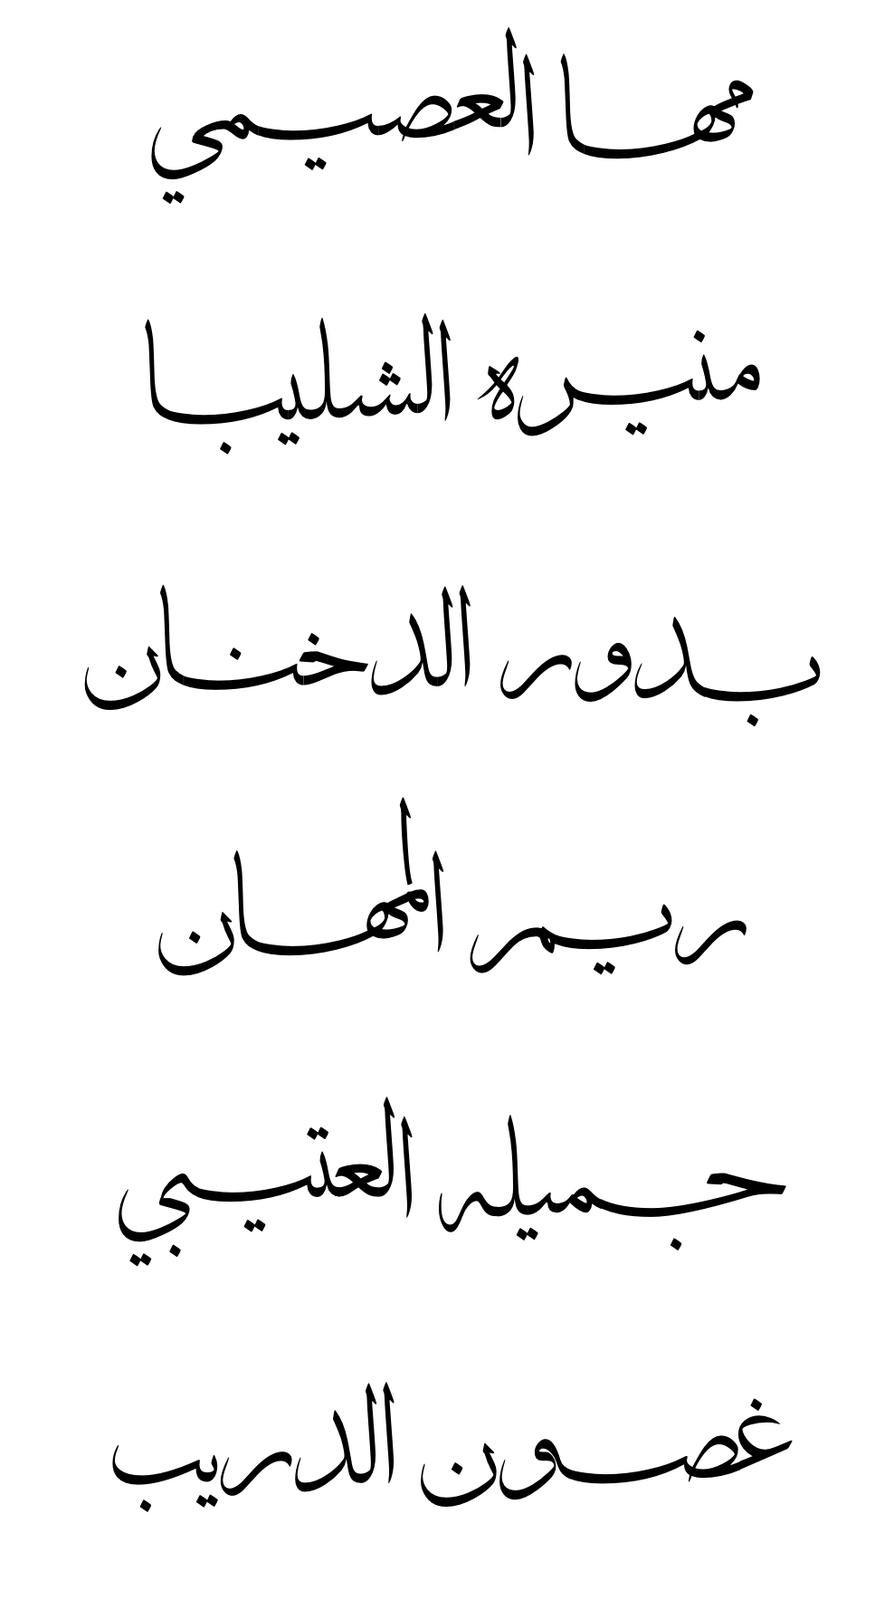 مها العصيمي
منيره الشليبا
بدور الدخنان
ريم المهان
جميله العتيبي
غصون الدريب